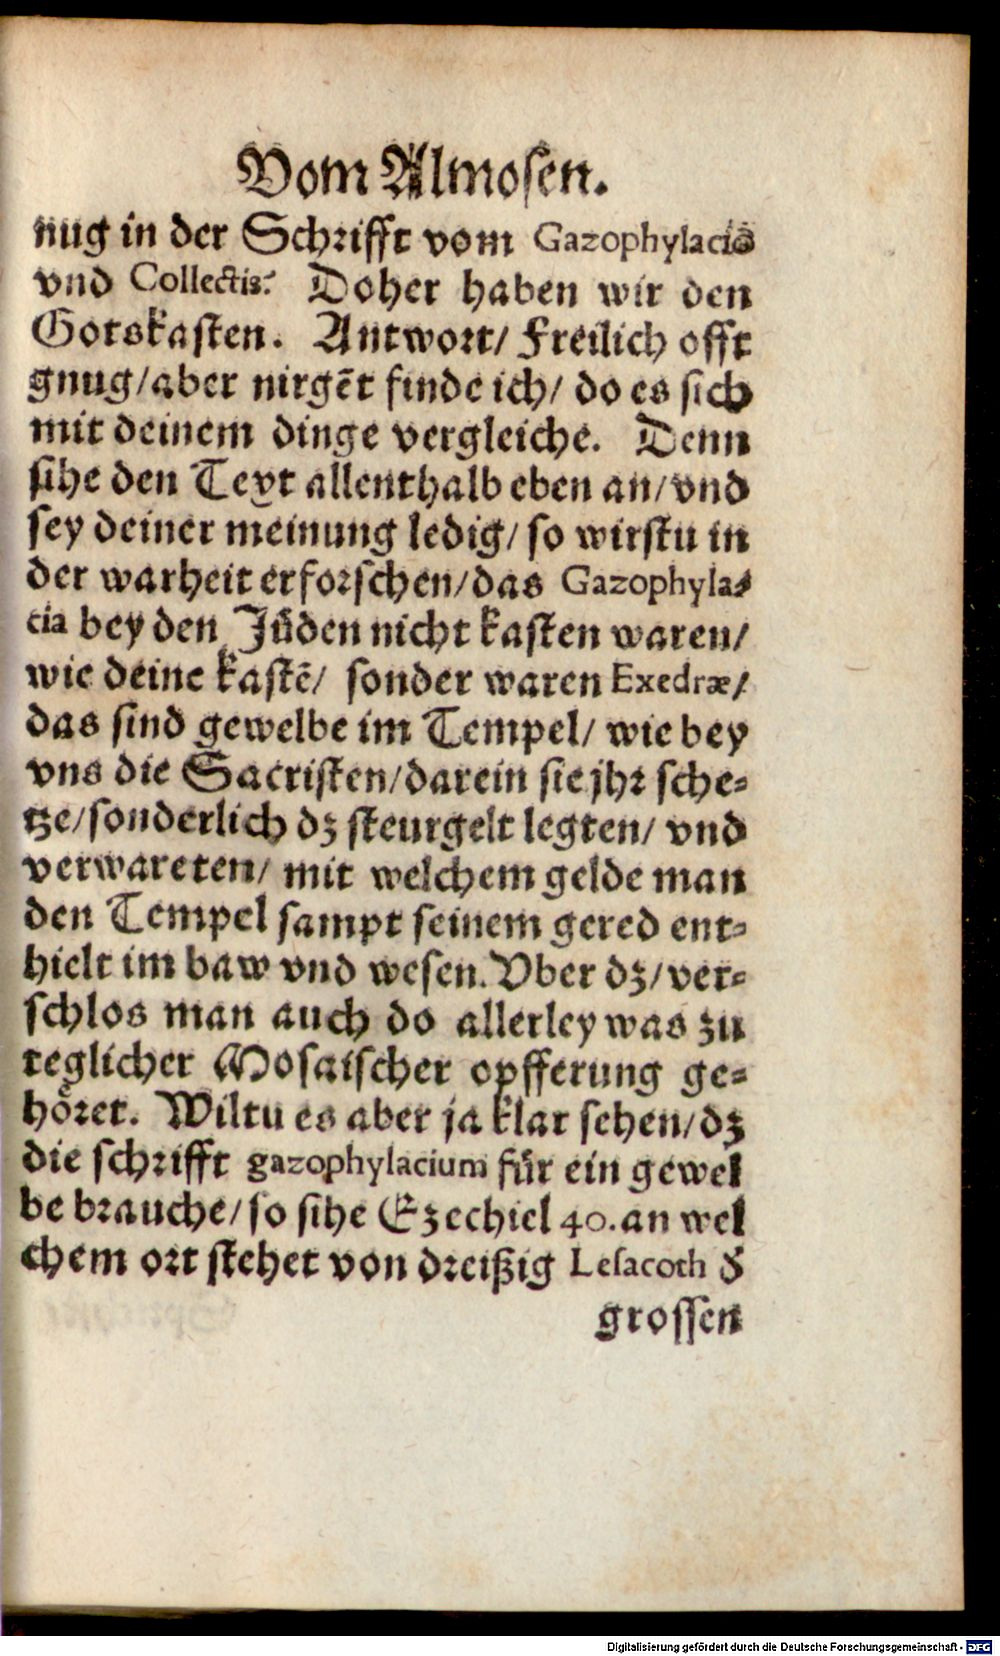 Vom Almosen.
nug in der Schrifft vom Gazophylaciis
vnd Collectis? Doher haben wir den
Gotskasten. Antwort/ Freilich offt
gnug/aber nirgēt finde ich/ do es sich
mit deinem dinge vergleiche. Denn
sihe den Text allenthalb eben an/vnd
sey deiner meinung ledig/ so wirstu in
der warheit erforschen/das Gazophyla-
cia bey den Jüden nicht kasten waren/
wie deine kastē/ sonder waren Exedræ/
das sind gewelbe im Tempel/ wie bey
vns die Sacristen/darein sie jhr sche-
tze/sonderlich dz steurgelt legten/ vnd
verwareten/ mit welchem gelde man
den Tempel sampt seinem gered ent-
hielt im baw vnd wesen. Vber dz/ ver-
schlos man auch do allerley was zu
teglicher Mosaischer opfferung ge-
höret. Wiltu es aber ja klar sehen/dz
die schrifft gazophylacium für ein gewel
be brauche/so sihe Ezechiel 40. an wel
chem ort stehet von dreißig Lesacoth ð
grossen
Digitalisierung gefördert durch die Deutsche Forschungsgemeinschaft - DFG